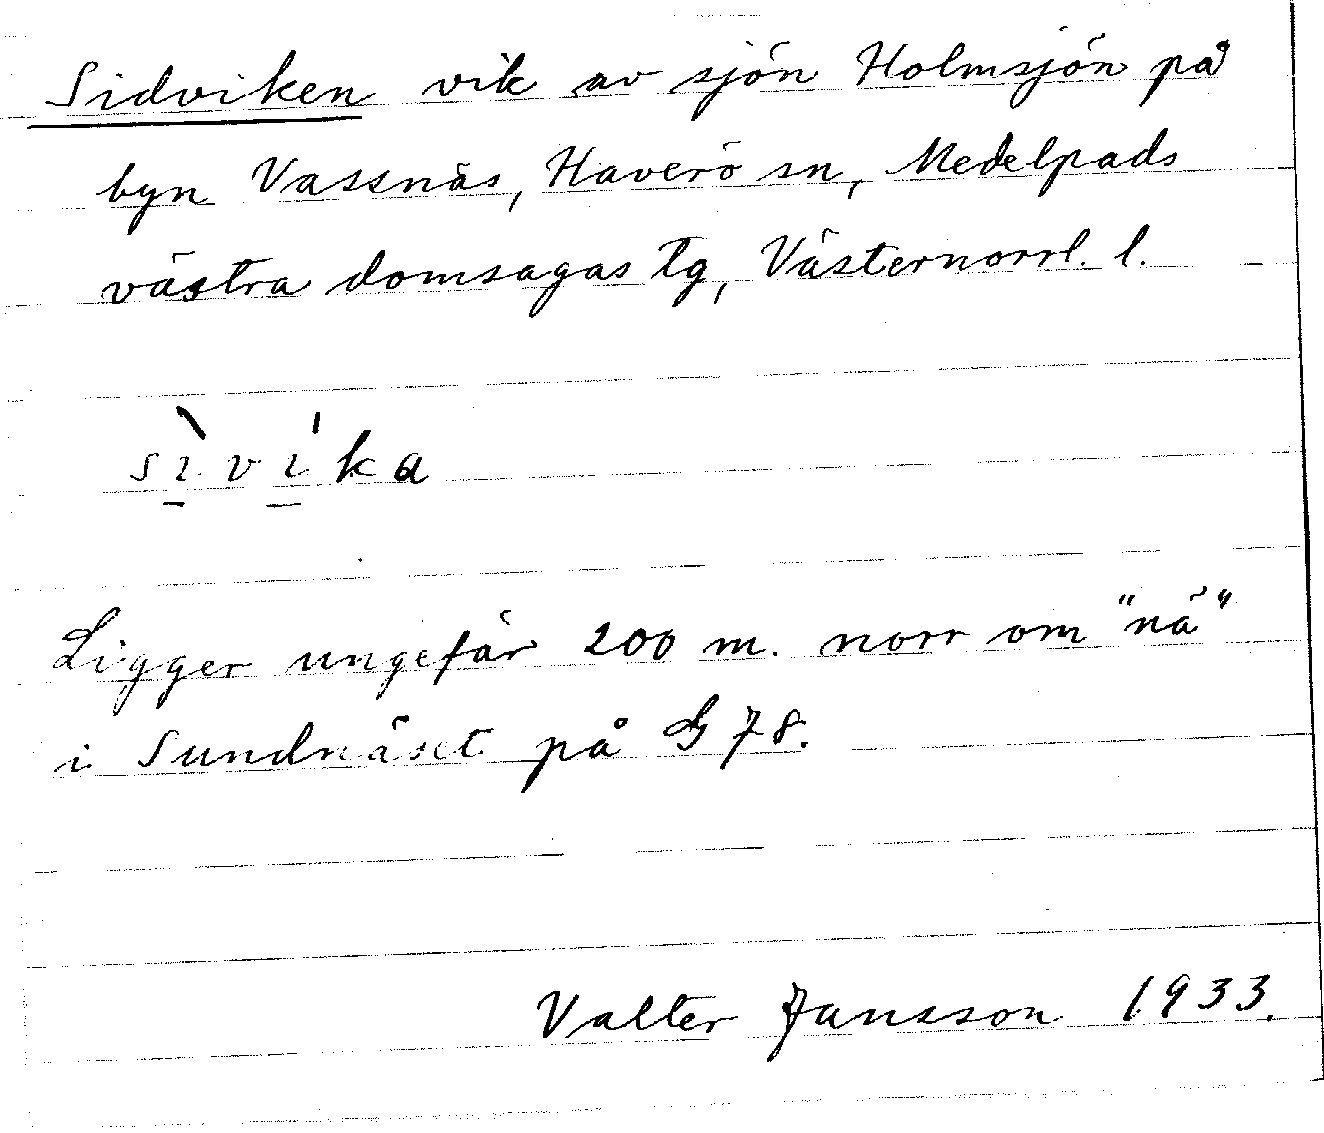 Sidviken vik av sjön Holmsjön på
byn Vassnäs, Haverö sn, Medelpads
västra domsagas tg, Västernorrl. l.
sı̱̀vı̱́ka
Ligger ungefär 200 m. norr om "nä"
i Sundnäset på G 78.
Valter Jansson 1933.